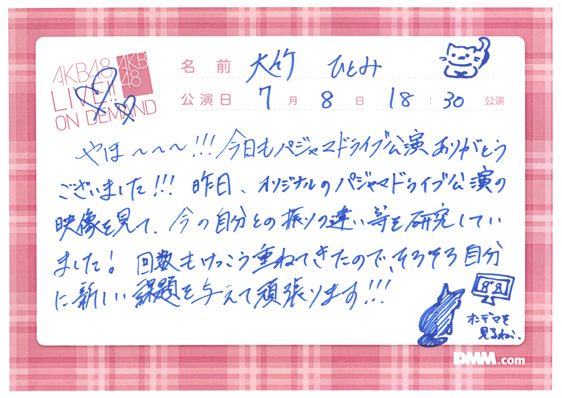 AKB48
LIVE!!
ON DEMAND
AKB
48
名前 大竹 ひとみ
公演日 7月8日 18:30公演
やほ〜〜〜!!!今日もパジャマドライブ公演ありがとう
ございました!!!昨日、オリジナルのパジャマドライブ公演の
映像を見て、今の自分との振りの違い等を研究してい
ました!回数もけっこう重ねてきたので、そろそろ自分
に新しい課題を与えて頑張ります!!!
オンデマを
見るねこ
DMM.com